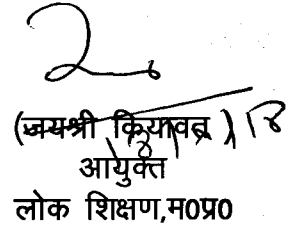 (जयश्री कियावत)
आयुक्त
लोक शिक्षण,म0प्र0